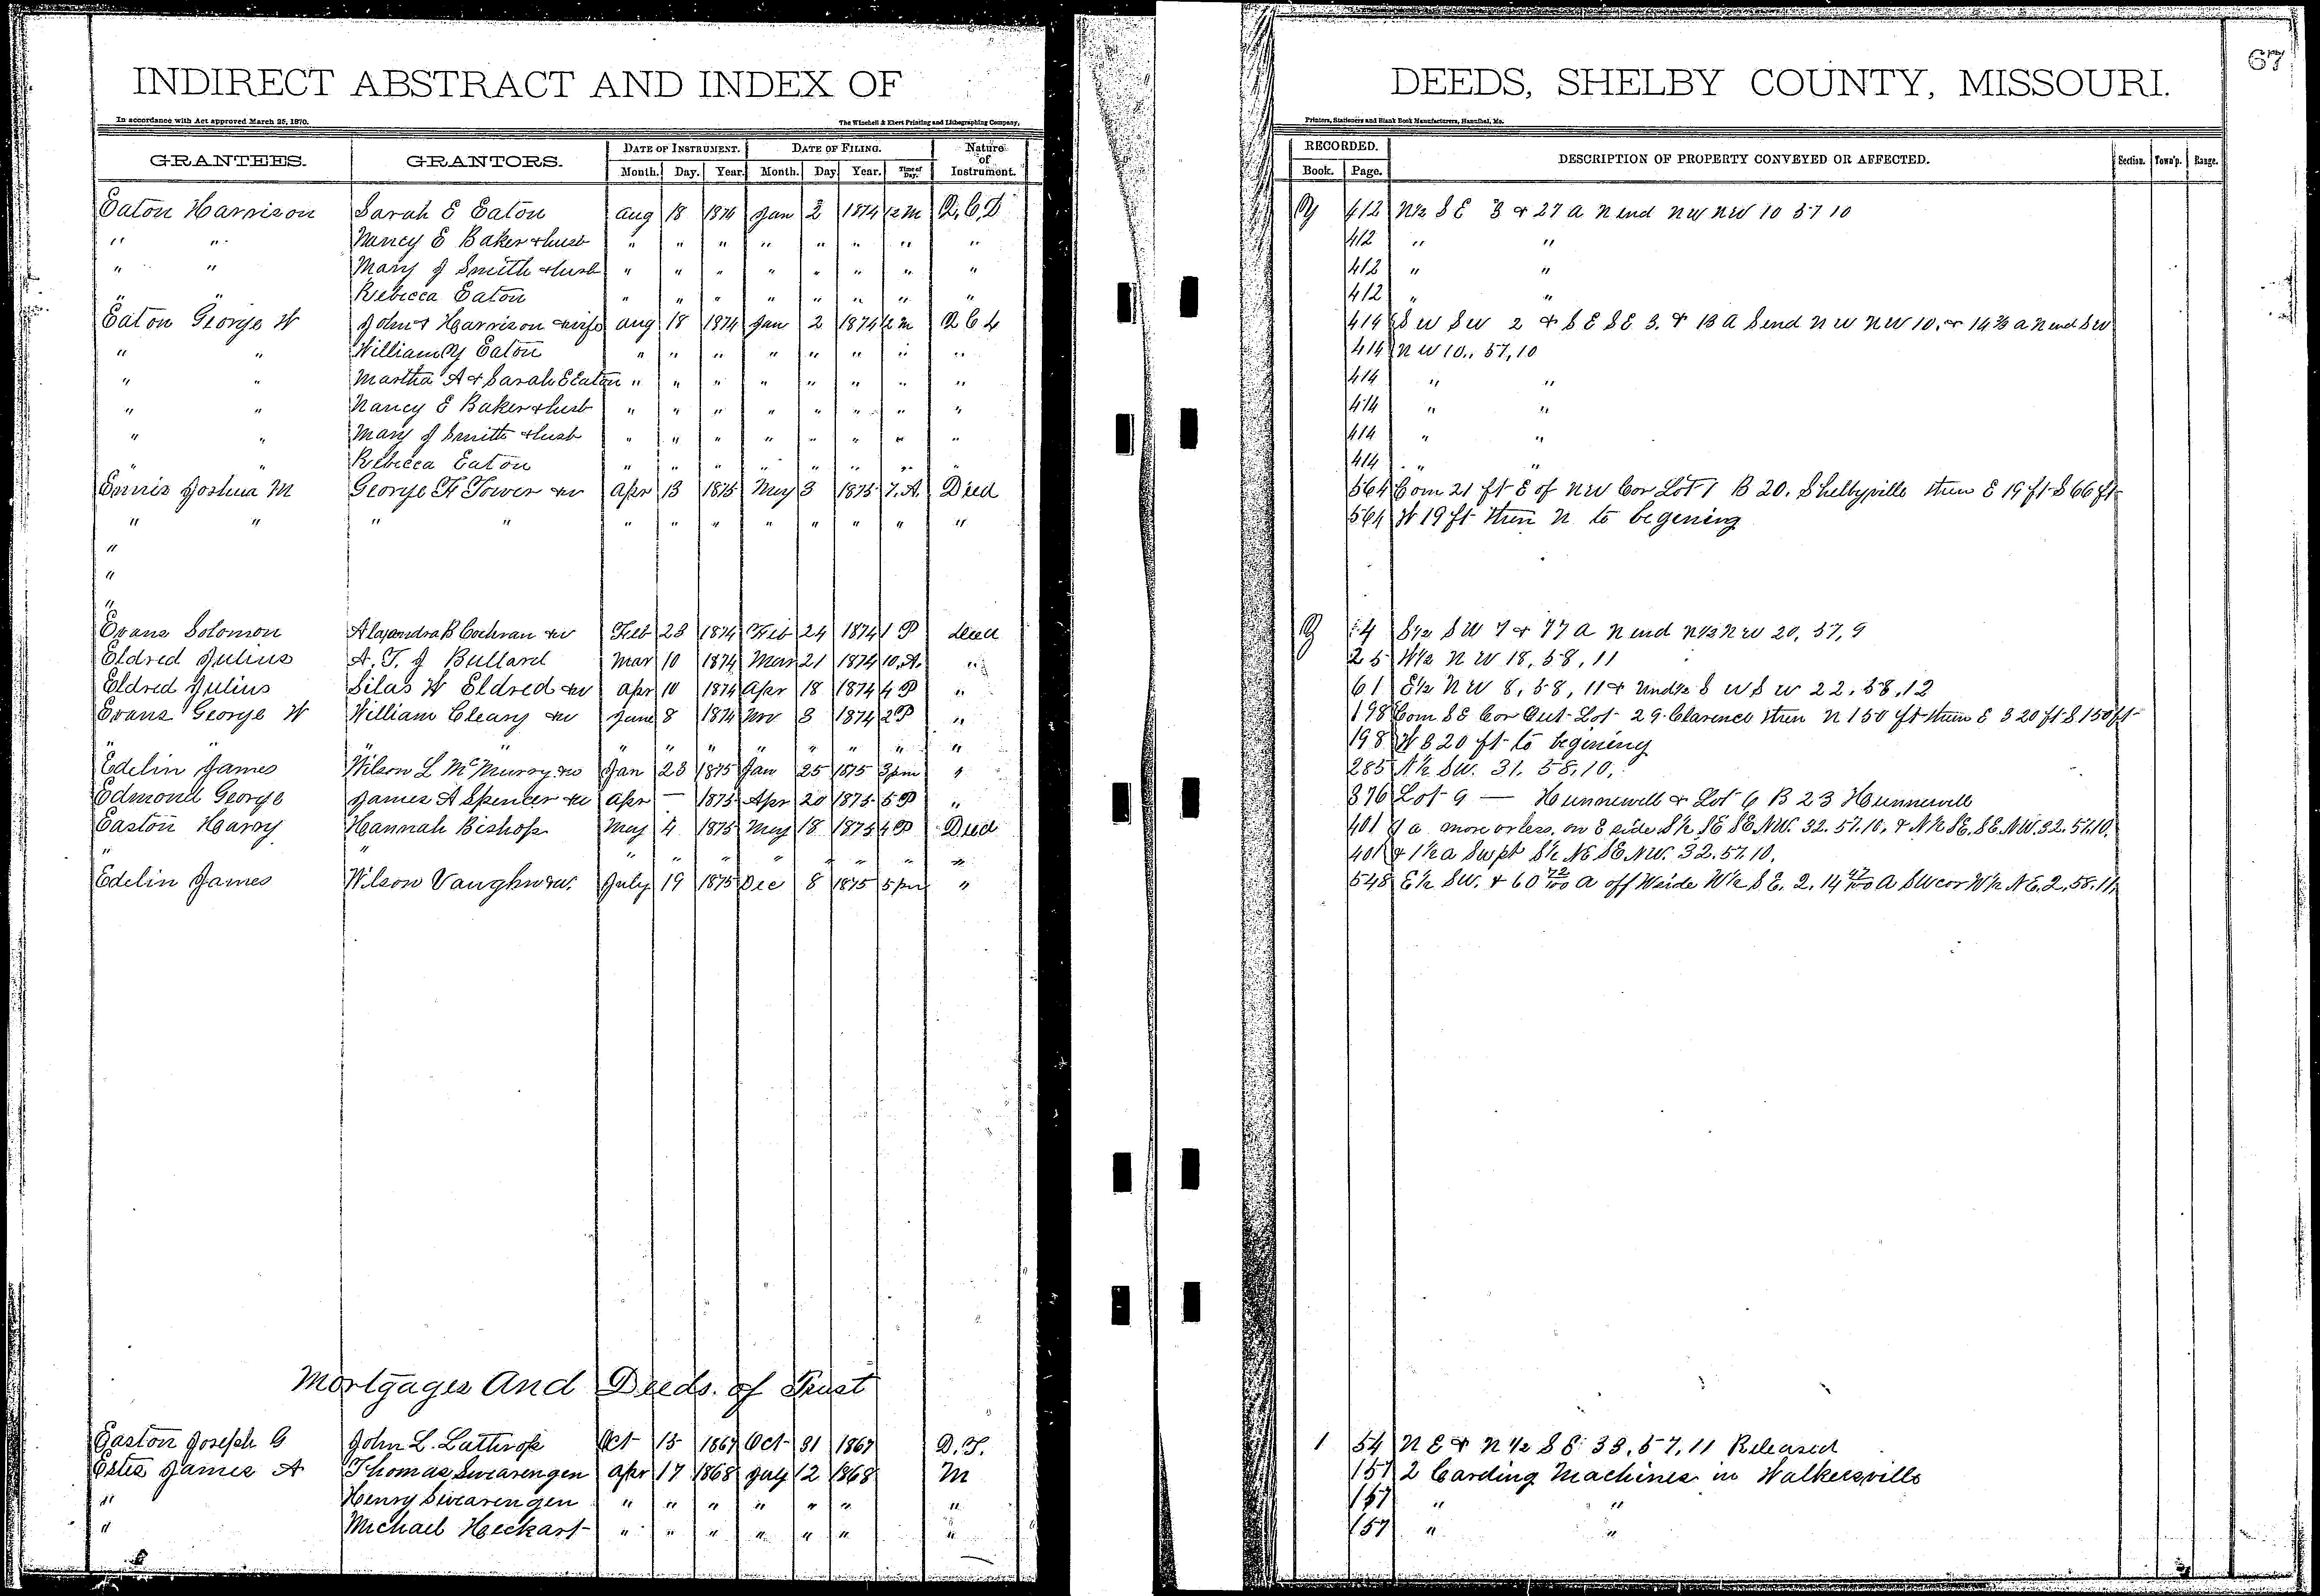 67
INDIRECT ABSTRACT AND INDEX OF DEEDS, SHELBY COUNTY, MISSOURI.
In accordance with Act approved March 25, 1870. The Winchell & Ebert Printing and Lithographing Company, Printers, Stationers and Blank Book Manufacturers, Hannibal, Mo.
GRANTEES. GRANTORS. DATE OF INSTRUMENT. DATE OF FILING. Nature of Instrument. RECORDED. DESCRIPTION OF PROPERTY CONVEYED OR AFFECTED. Section. Town'p. Range.
Month. Day. Year. Month. Day Year. Time of Day. Book. Page.
Eaton Harrison Sarah E Eaton Aug 18 1874 Jan 2 1874 12 M Q, C, D Y 412 N½ S E 3 & 27 a N end N W N W 10 57 10
" " Nancy E Baker & husb " " " " " " " " 412 " "
" " Mary J Smith & husb " " " " " " " " 412 " "
" " Rebecca Eaton " " " " " " " " 412 " "
Eaton George W John & Harrison & wife Aug 18 1874 Jan 2 1874 12 M 414 S W S W 2 & S E S E 3. & 13 A S end N W N W 10. & 14⅔ a N end S W
" " William Y Eaton " " " " " " " " 414 N W 10., 57, 10
" " Martha A & Sarah E Eaton " " " " " " " " 414 " "
" " Nancy E Baker & husb " " " " " " " " 414 " "
" " Mary J Smith & husb " " " " " " " " 414 " "
" " Rebecca Eaton " " " " " " " " 414 " "
Ennis Joshua M George F Tower & w Apr 13 1875 May 3 1875 7. A. Deed 564 Com 21 ft E of N W Cor Lot 1 B 20. Shelbyville then E 19 ft S 66 ft
" " " " " " " " " " " " 564 W 19 ft then N to begening
"
"
"
Evans Solomon B Cochran & w Feb 23 1874 Feb 24 1874 1 P Deed 4 S½ S W 7 & 77 a N end N½ N W 20, 57, 9
Eldred Julius A. T. J Bullard Mar 10 1874 Mar 21 1874 10. A. " 25 W½ N W 18, 58, 11
Eldred Julius Silas W Eldred & w Apr 10 1874 Apr 18 1874 4 P " 61 E½ N W 8, 58, 11 & Und½ S W S W 22, 58, 12
Evans George W William Cleary & w June 8 1874 Nov 3 1874 2 P " 198 Com S E Cor Out Lot 29 Clarence then N 150 ft then E 320 ft S 150 ft
" " " " " " " " " " " " 198 W 320 ft to begining
Edelin James Wilson L McMurry & w Jan 23 1875 Jan 25 1875 3 pm " 285 N½ SW. 31. 58, 10.
Edmond George James A Spencer & w Apr — 1875 Apr 20 1875 5 P " 376 Lot 9 — Hunnewell & Lot 6 B 23 Hunnewell
Easton Harry Hannah Bishop May 4 1875 May 18 1875 4 P Deed 401 a more or less, on E side S½ SE SE NW. 32. 57. 10. & N½ SE. SE. NW. 32. 57. 10.
" " " " " " " " " " 401 & 1½ a Sw pt S½ NE SE NW. 32. 57. 10.
Edelin James Wilson Vaughn & w. July 19 1875 Dec 8 1875 5 pm " 548 E½ SW. & 60 72/100 A off W side W½ S E. 2. 14 47/100 A SW cor W½ N E. 2, 58. 11,
Mortgages And Deeds. of Trust
Easton Joseph G John L. Lathrop Oct 15 1867 Oct 31 1867 D. T. 1 54 N E & N½ S E 33, 57, 11 Released
Estes James A Thomas Swearengen Apr 17 1868 July 12 1868 M 157 2 Carding Machines in Walkersville
" Henry Swearengen " " " " " " " 157 " "
" Michael Heckart " " " " " " " 157 " "